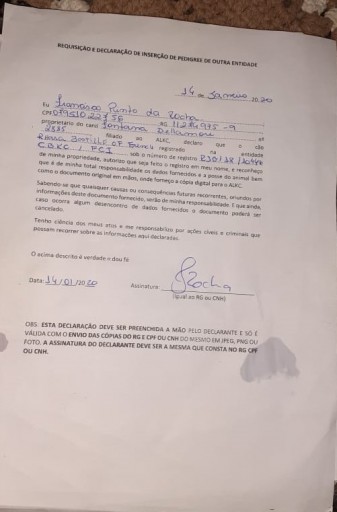 REQUISIÇÃO E DECLARAÇÃO DE INSERÇÃO DE PEDIGREE DE OUTRA ENTIDADE
14 de Janeiro 2020
Eu Francisco Pinto da Rocha
CPF RG
proprietário do canil Fontana Dellamore nº
filiado ao ALKC, declaro que o cão
registrado na entidade
CBKC / FCI sob o número de registro
de minha propriedade, autorizo que seja feito o registro em meu nome, e reconheço
que é de minha total responsabilidade os dados fornecidos e a posse do animal bem
como o documento original em mãos, onde forneço a cópia digital para o ALKC.
Sabendo-se que quaisquer causas ou consequências futuras recorrentes, oriundos por
informações deste documento fornecido, serão de minha responsabilidade. E que ainda,
caso ocorra algum desencontro de dados fornecidos o documento poderá ser
cancelado.
Tenho ciência dos meus atos e me responsabilizo por ações cíveis e criminais que
possam recorrer sobre as informações aqui declaradas.
O acima descrito é verdade e dou fé.
Data: 14/01/2020 Assinatura: Rocha
(igual ao RG ou CNH)
OBS: ESTA DECLARAÇÃO DEVE SER PREENCHIDA A MÃO PELO DECLARANTE E SÓ É
VÁLIDA COM O ENVIO DAS CÓPIAS DO RG E CPF OU CNH DO MESMO EM JPEG, PNG OU
FOTO. A ASSINATURA DO DECLARANTE DEVE SER A MESMA QUE CONSTA NO RG CPF
OU CNH.